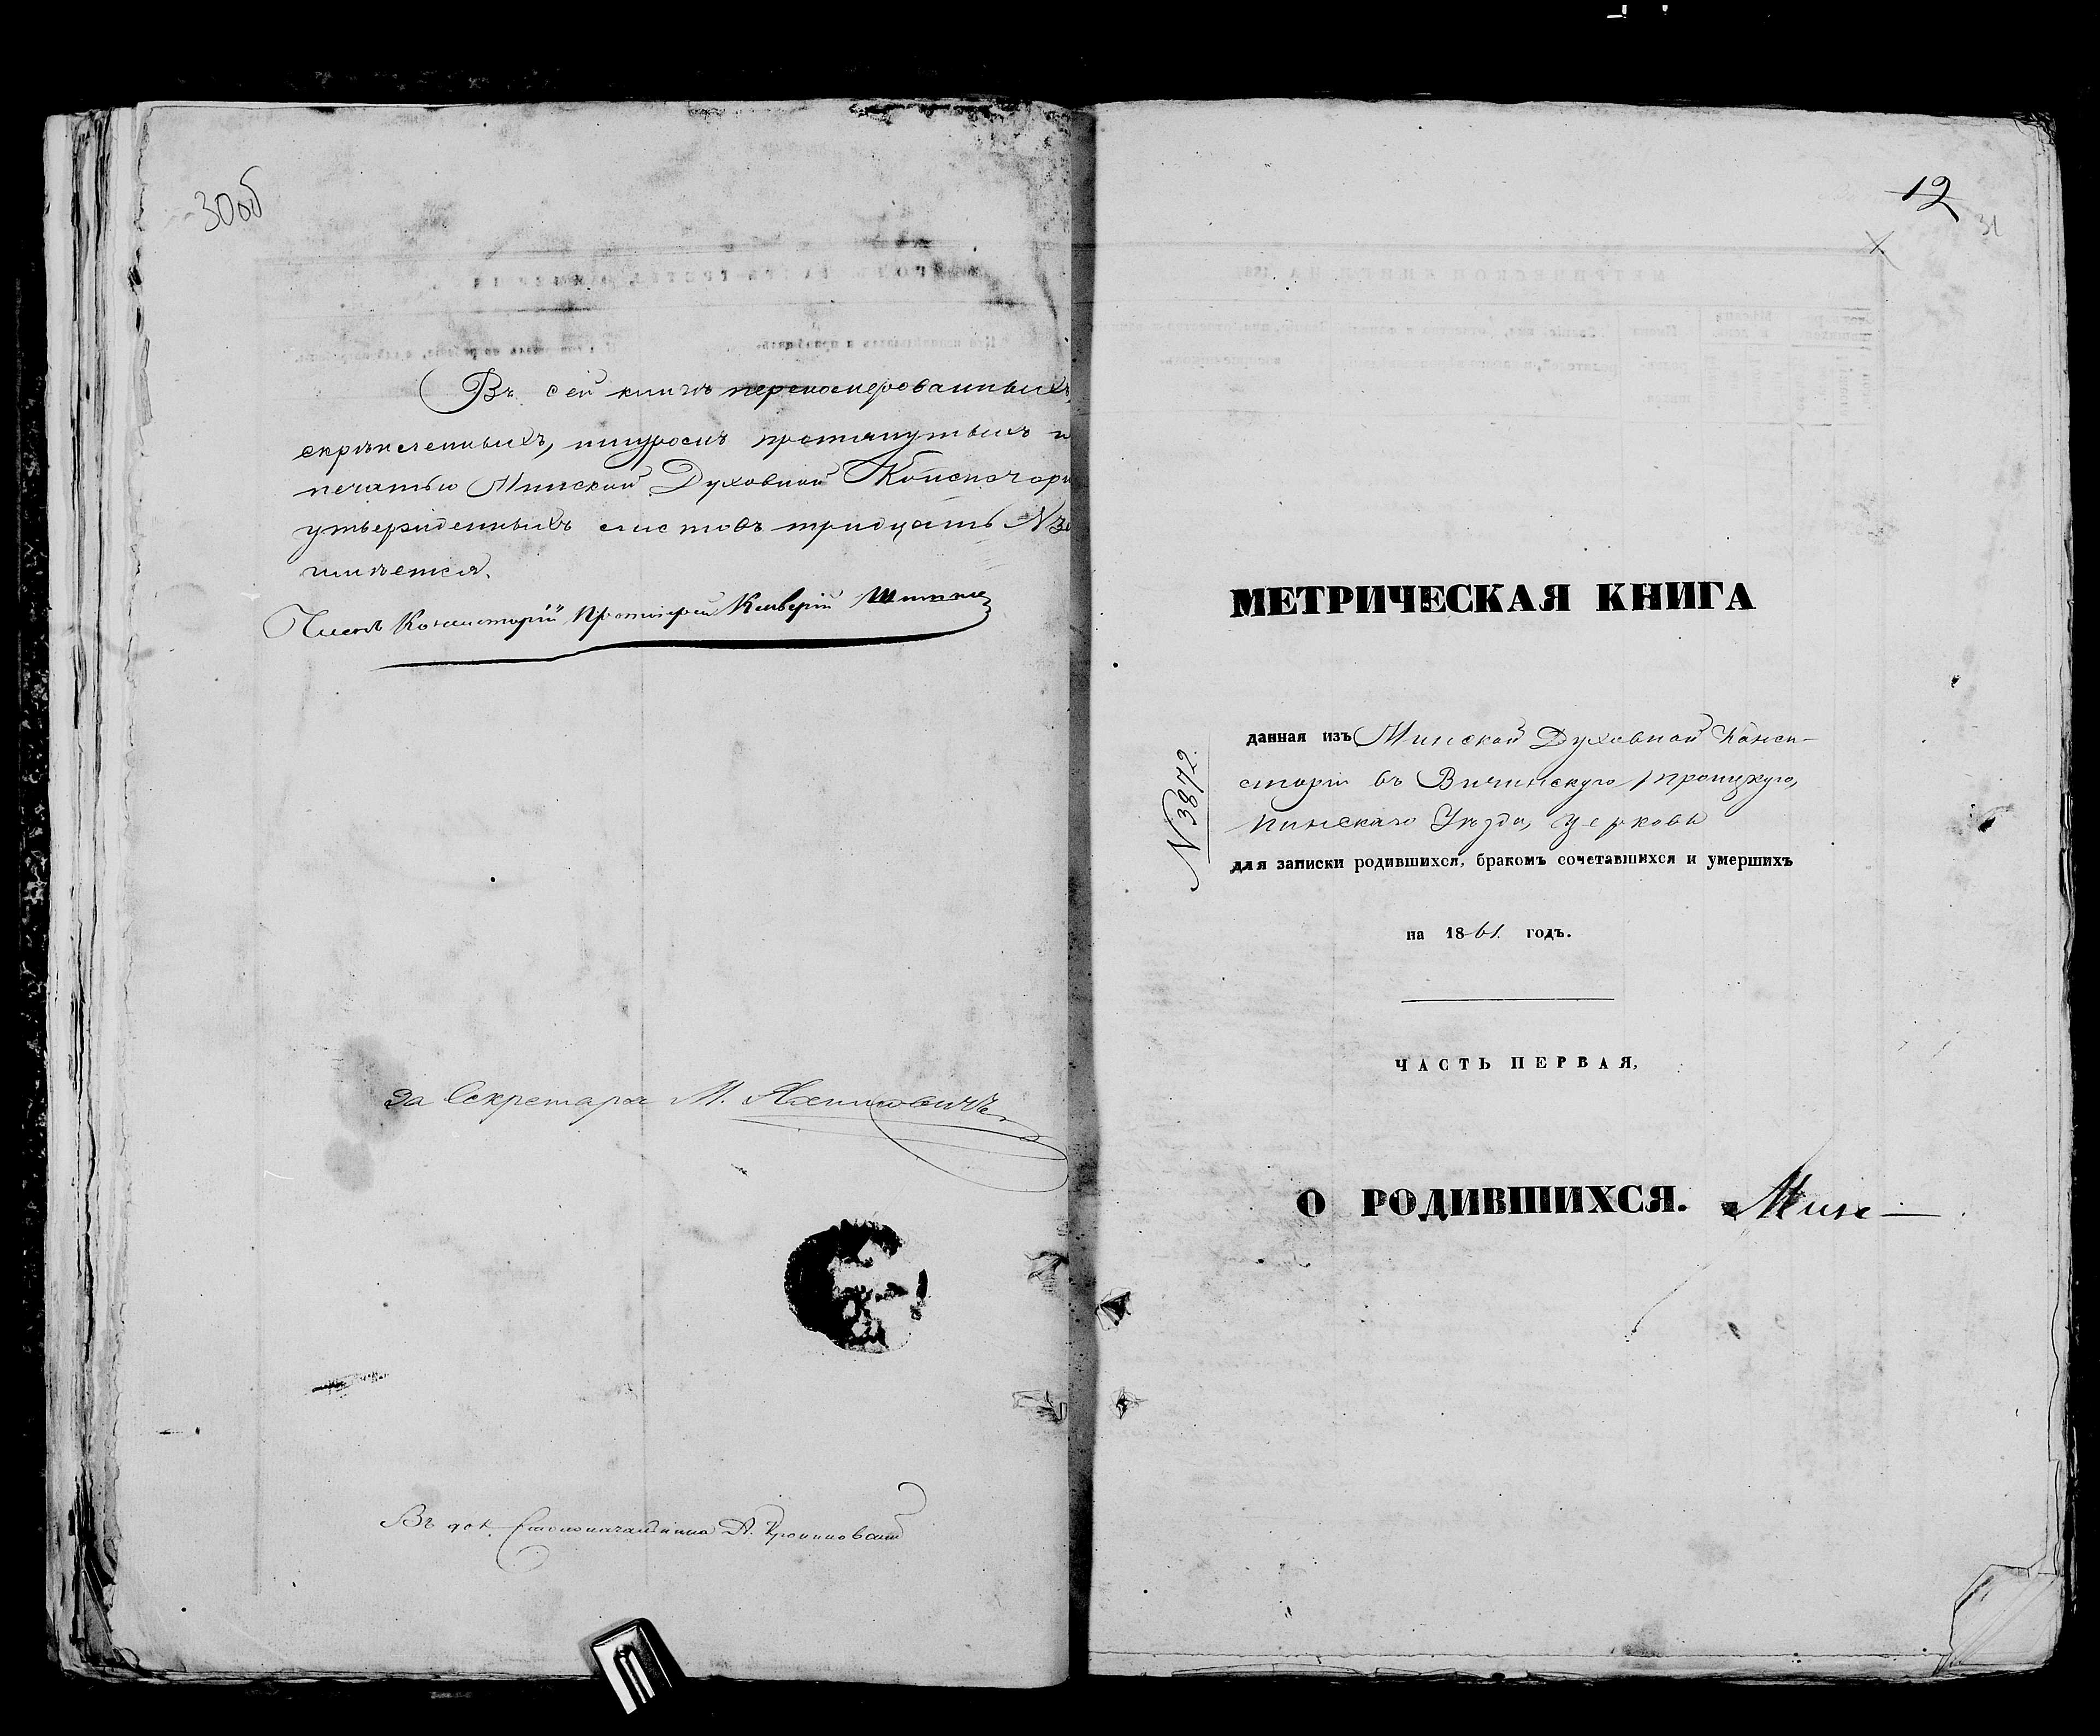 30об
Въ сей книгѣ переномерованныхъ,
скрѣпленныхъ, шнуромъ протянутыхъ и
печатью Минской Духовной Консистори
утвержденныхъ листовъ тридцать №30
числится.
Членъ Консисторіи Протоіерей
За Секретаря М.
Въ дол. Столоначальника А.
12
31
МЕТРИЧЕСКАЯ КНИГА
№3872.
данная изъ Минской Духовной Конси-
сторіи въ Вичинскую Троицкую,
Пинскаго Уѣзда, Церковь
для записки родившихся, бракомъ сочетавшихся и умершихъ
на 1861. годъ.
ЧАСТЬ ПЕРВАЯ,
О РОДИВШИХСЯ.